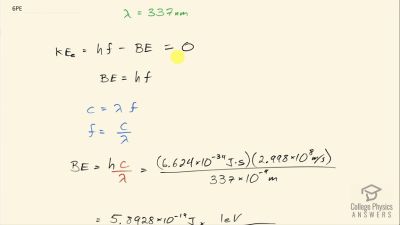 6PE
λ = 337 nm
KEₑ = hf - BE = 0
BE = hf
c = λ f
f = c/λ
BE = h c/λ = (6.626×10⁻³⁴ J·s)(2.998×10⁸ m/s) / 337×10⁻⁹ m
= 5.8928×10⁻¹⁹ J × 1eV
College Physics
ANSWERS